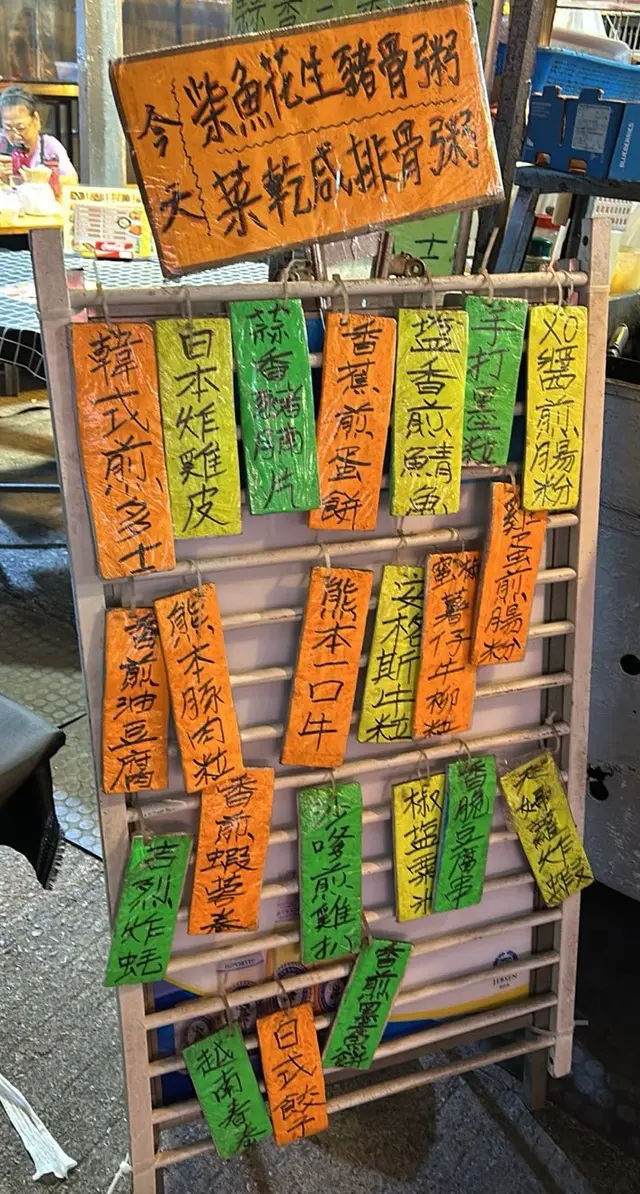 今天
柴魚花生豬骨粥
菜乾咸排骨粥
韓式煎多士
日本炸雞皮
蒜香豬頸片
香蕉煎蛋餅
塩香煎鯖魚
手打墨粒
XO醬煎腸粉
香煎油豆腐
熊本豚肉粒
熊本一口牛
安格斯牛粒
薯仔牛柳粒
雞蛋煎腸粉
吉烈炸蚝
香煎蝦薯卷
沙嗲煎雞扒
椒塩
香脆豆腐串
炸蝦
越南春卷
日式餃子
香煎墨魚餅
BLUEBERRIES